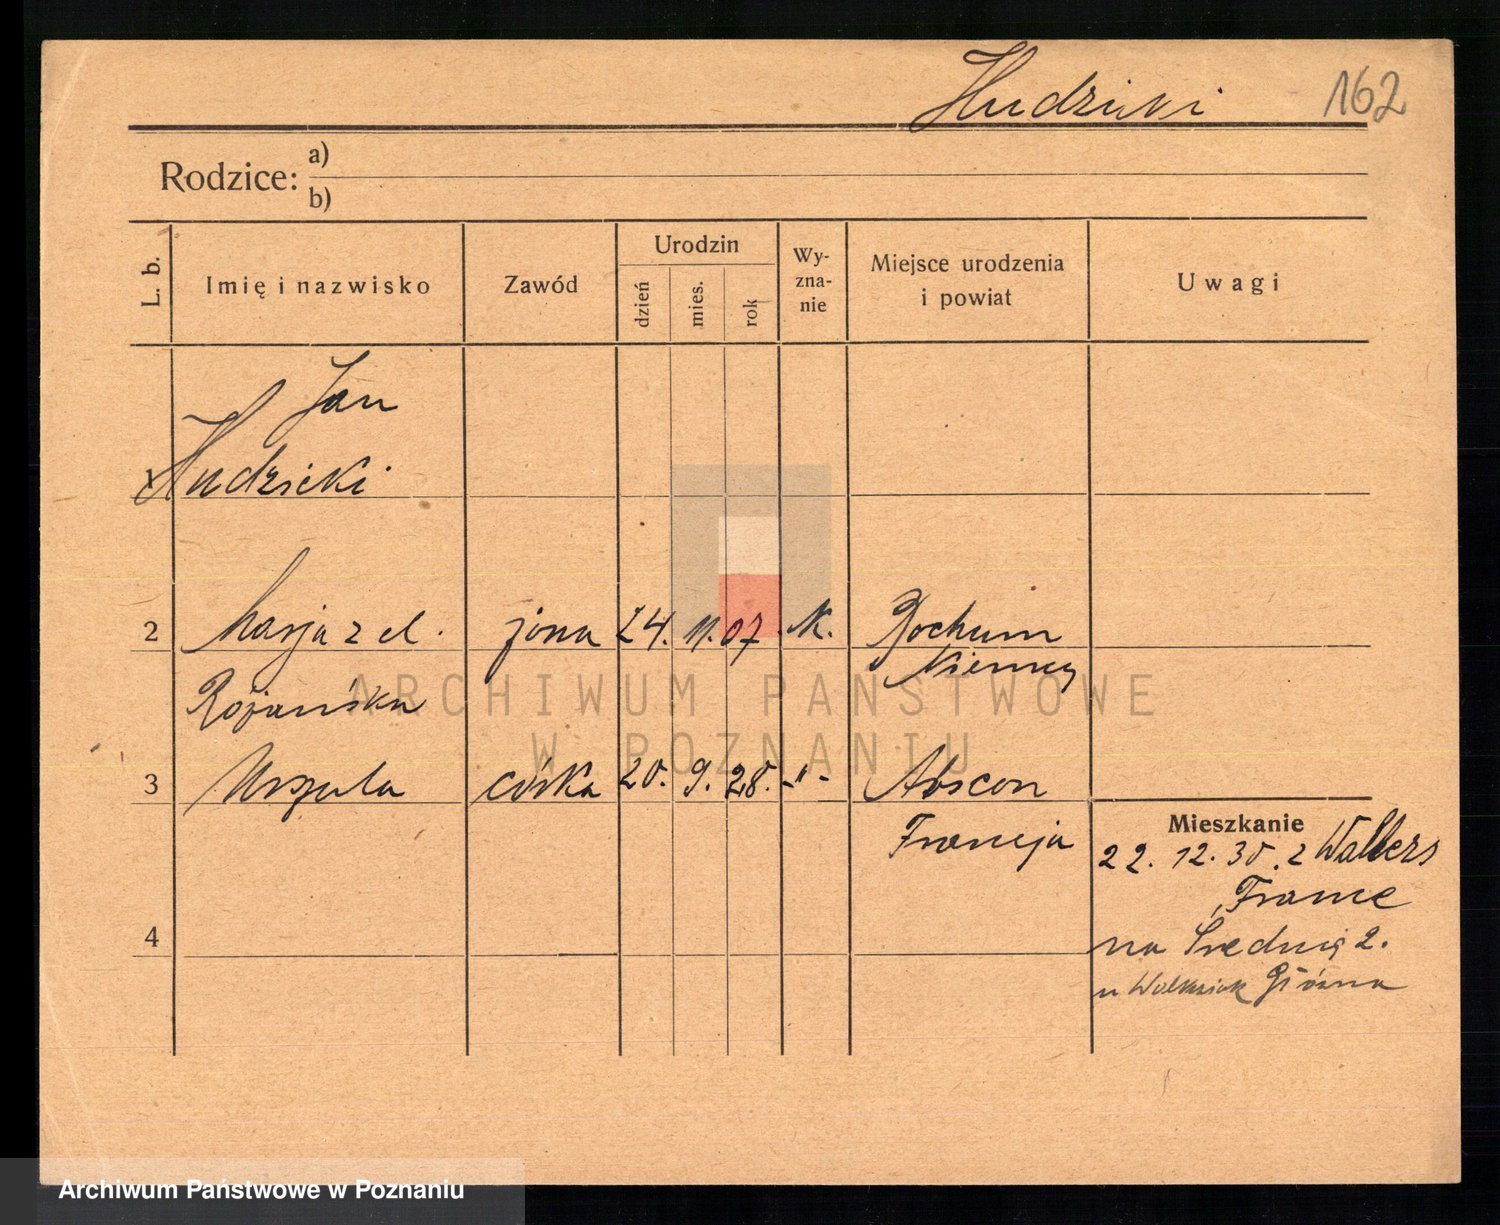 Hudzicki 162
Rodzice: a)
b)
L. b. Imię i nazwisko Zawód Urodzin dzień mies. rok Wy-zna-nie Miejsce urodzenia i powiat Uwagi
Jan
1 Hudzicki
2 Marja z d. żona 24. 11. 07. K. Bochum
Niemcy
Rożańska
3 Urszula córka 20. 9. 28. -"- Abscon
Mieszkanie
Francja 22. 12. 30. z Wallers
France
4 na Średnią 2.
u Główna
ARCHIWUM PAŃSTWOWE
W POZNANIU
Archiwum Państwowe w Poznaniu